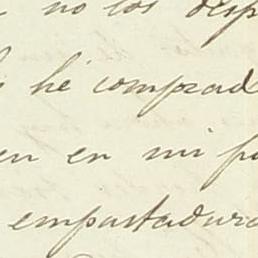 no los desp
he comprad
en en mi po
empastadura